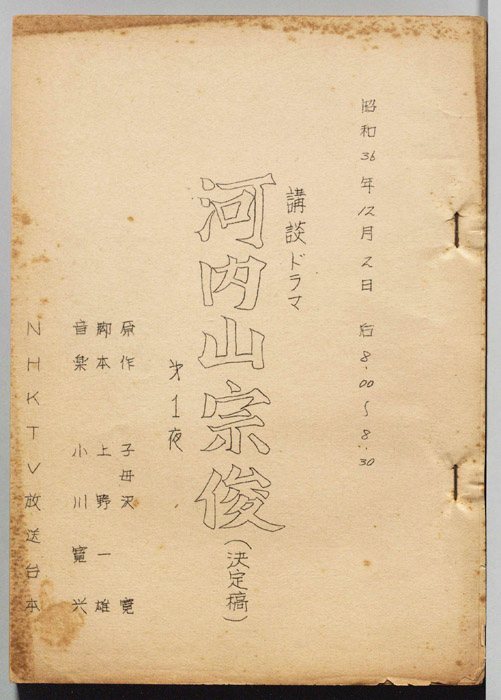 昭和36年12月2日 后8.00〜8:30
講談ドラマ
河内山宗俊(決定稿)
才1夜
原作 子母沢寛
脚本 上野一雄
音楽 小川寛興
NHKTV放送台本